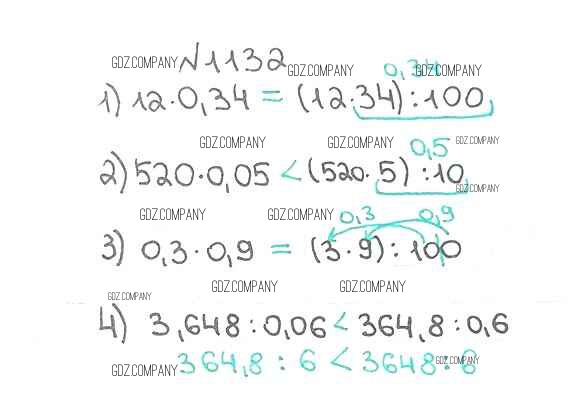 GDZ.COMPANY №1132 GDZ.COMPANY GDZ.COMPANY
0,34
1) 12·0,34 = (12·34):100
GDZ.COMPANY GDZ.COMPANY GDZ.COMPANY
0,5
2) 520·0,05 < (520·5):10
GDZ.COMPANY
GDZ.COMPANY GDZ.COMPANY 0,3 0,9
3) 0,3·0,9 = (3·9):100
GDZ.COMPANY GDZ.COMPANY
GDZ.COMPANY
4) 3,648:0,06 < 364,8:0,6
GDZ.COMPANY 364,8 : 6 < 3648 : 6 GDZ.COMPANY